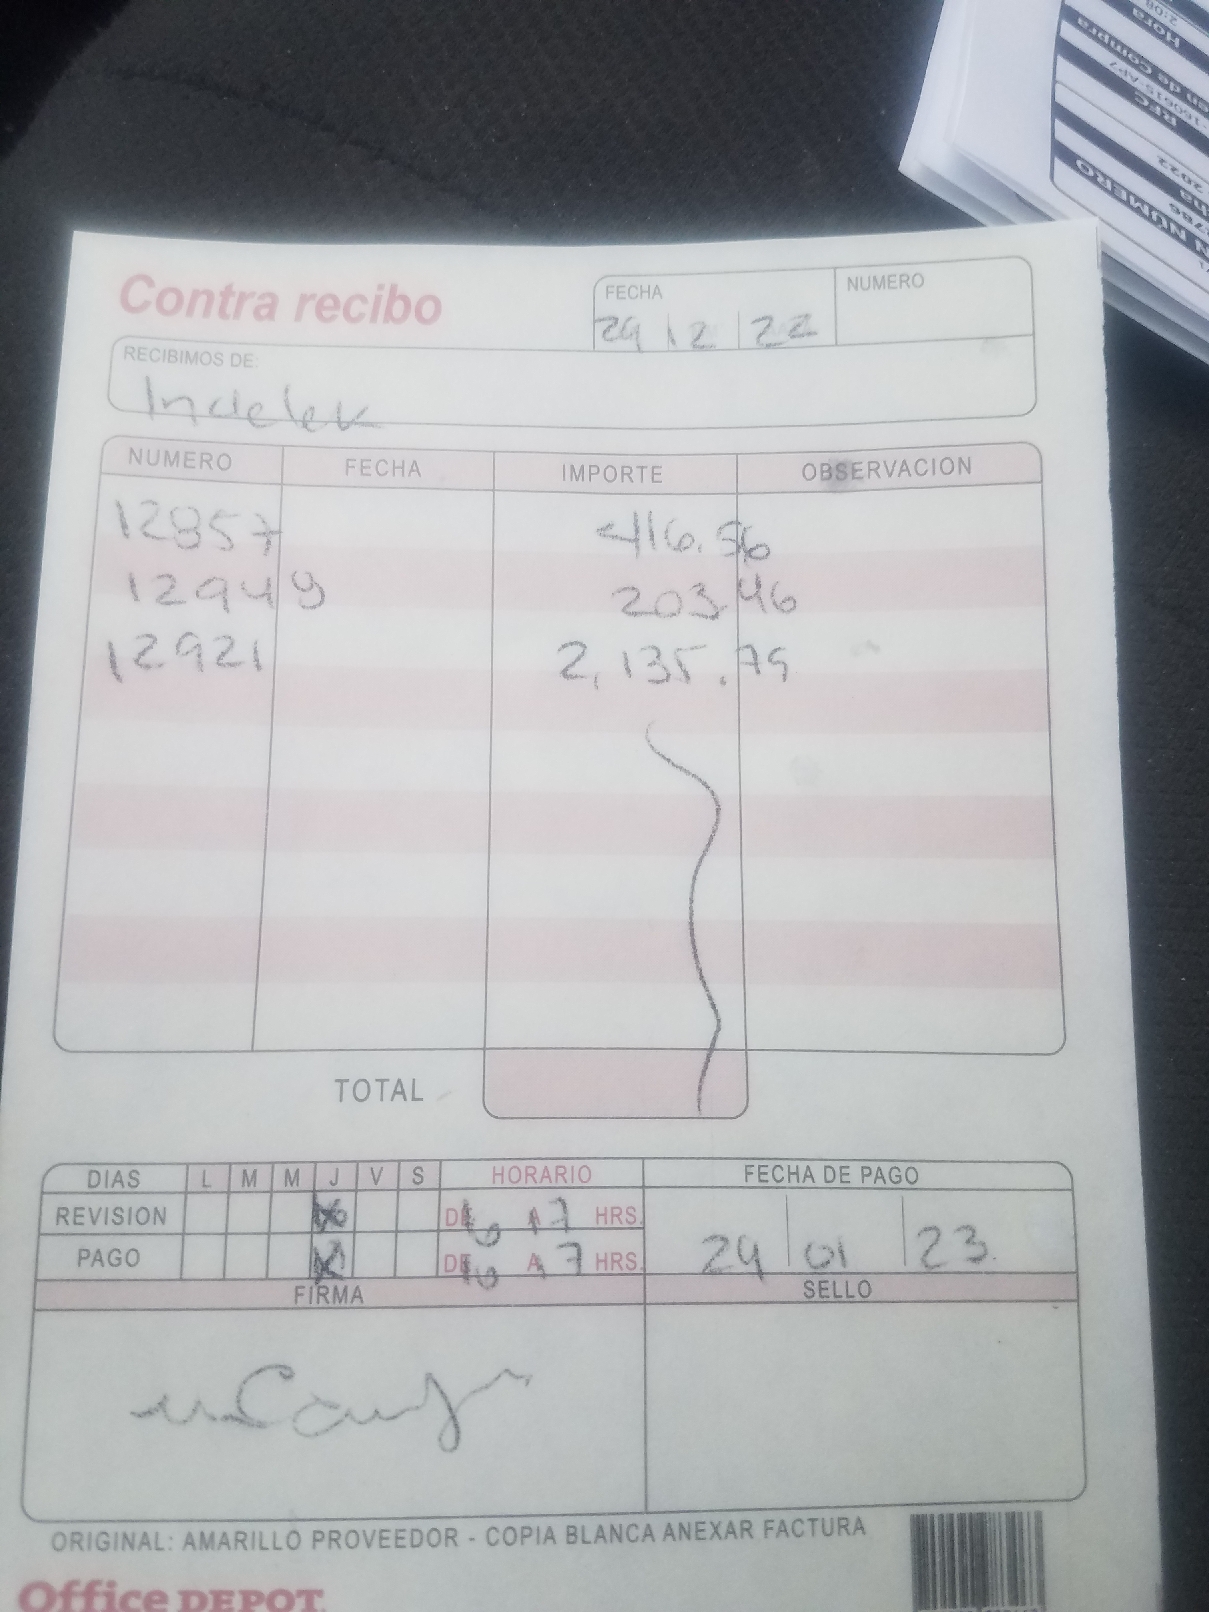 Contra recibo
FECHA
NUMERO
29 12 22
RECIBIMOS DE:
Indelek
NUMERO FECHA IMPORTE OBSERVACION
12857 416.56
12949 203.46
12921 2,135.79
TOTAL
DIAS L M M J V S HORARIO FECHA DE PAGO
REVISION X DE 16 A 17 HRS.
PAGO X DE 16 A 17 HRS. 29 01 23
FIRMA SELLO
ORIGINAL: AMARILLO PROVEEDOR - COPIA BLANCA ANEXAR FACTURA
Office DEPOT
NUMERO
2022
RFC
de Compra
Hora